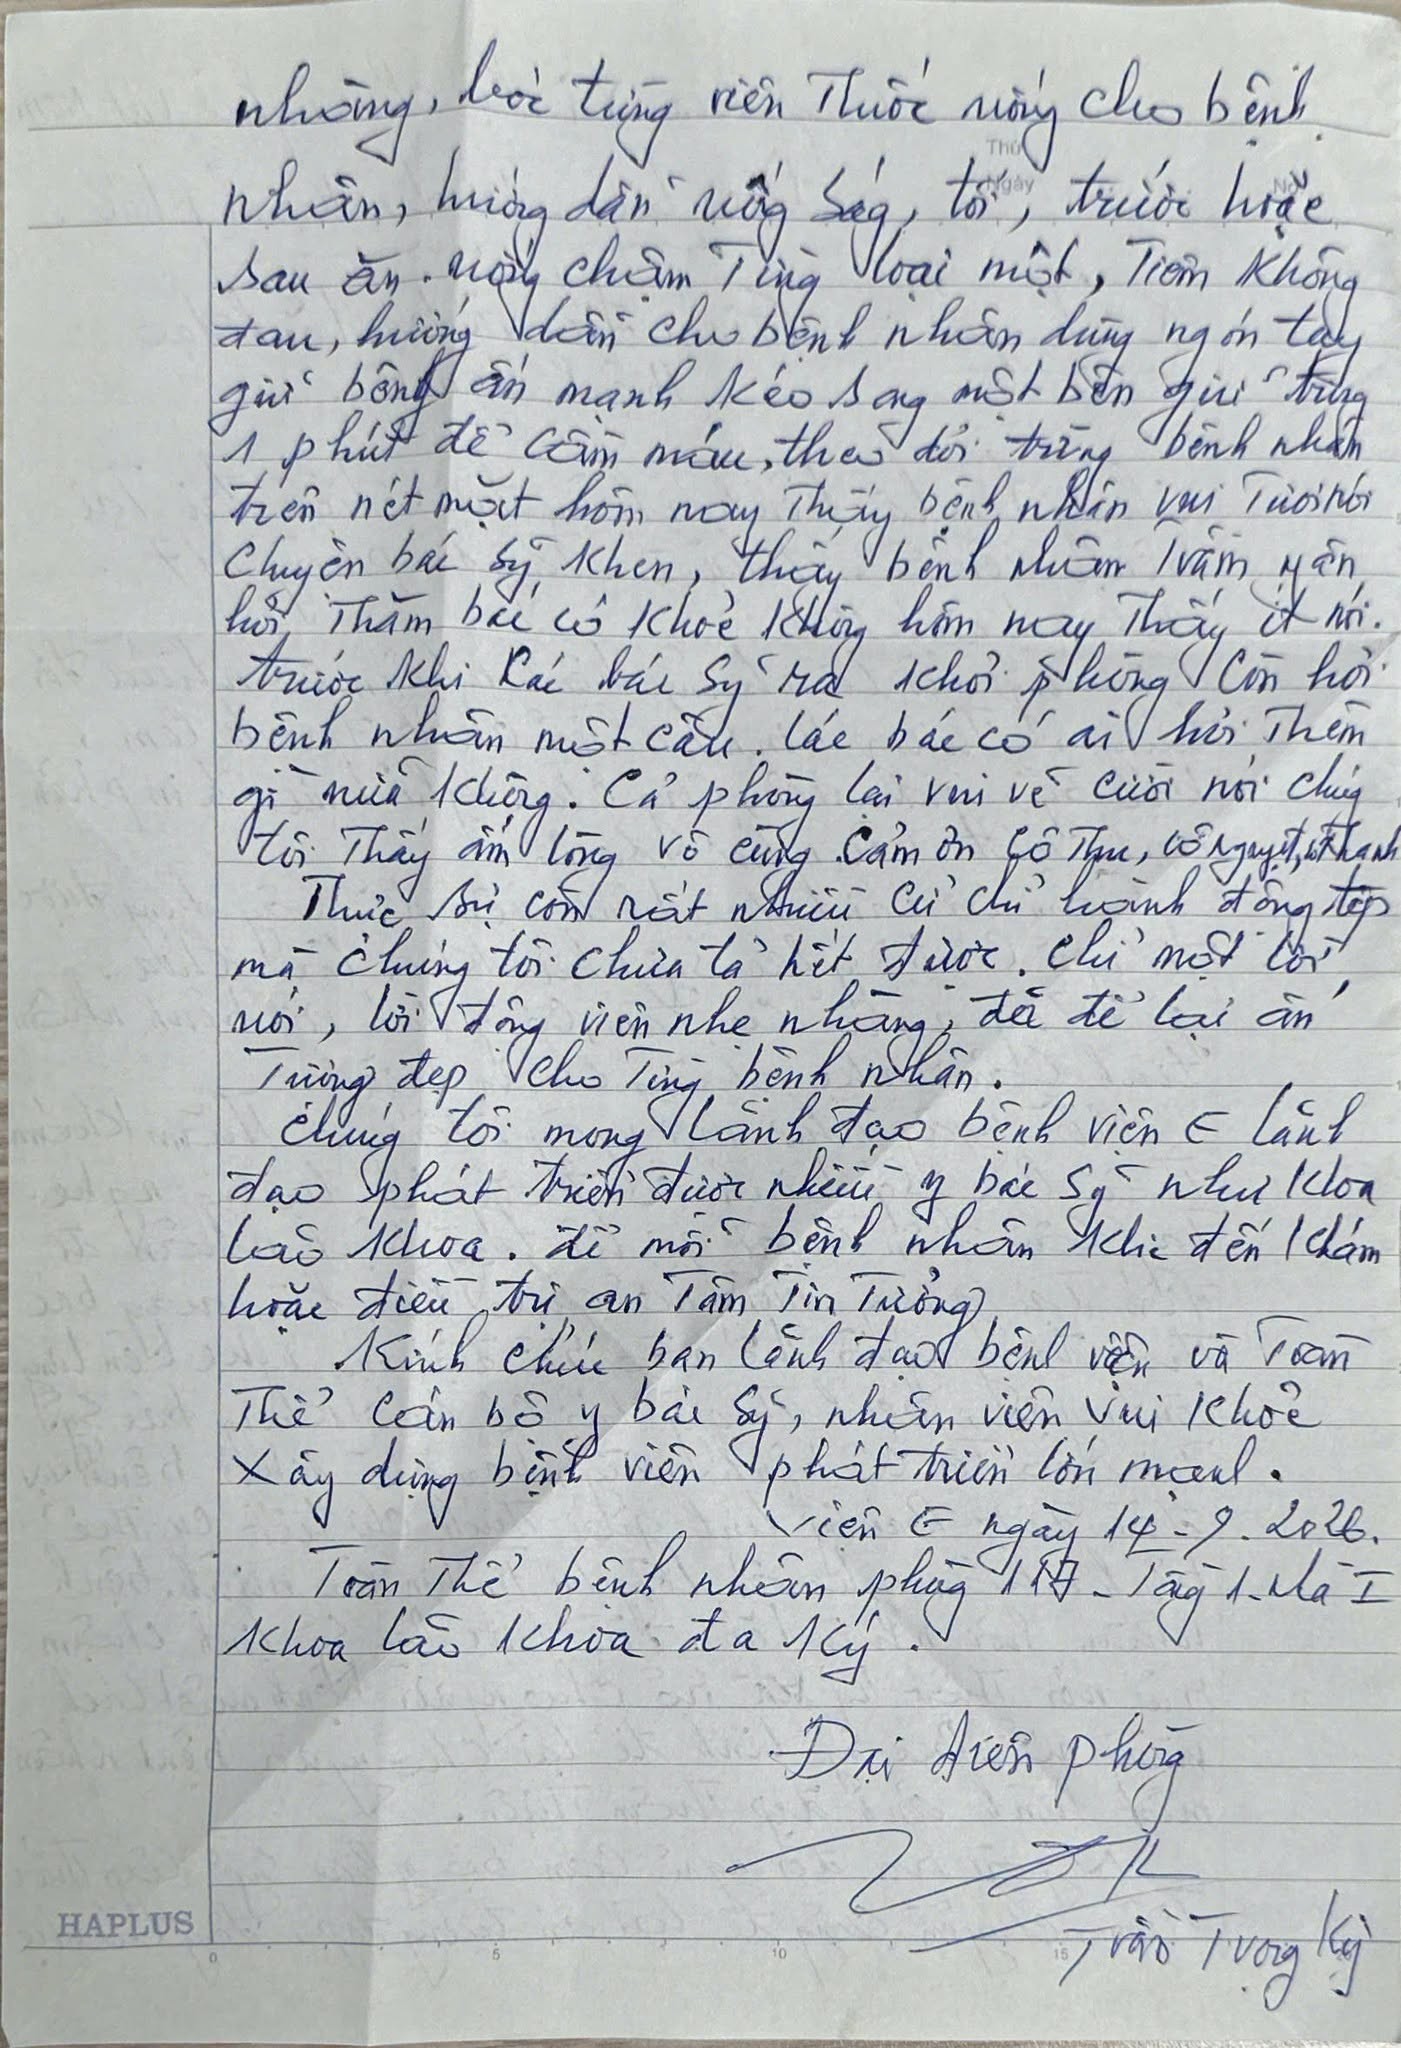 nhàng, bóc từng viên Thuốc uống cho bệnh
Thứ
Ngày
nhân, hướng dẫn uống sáng, tối, trước hoặc
sau ăn. uống chậm Từng loại một, Tiêm không
đau, hướng dẫn cho bệnh nhân dùng ngón tay
giữ bông ấn mạnh kéo sang một bên giữ từng
1 phút để cầm máu, theo dõi từng bệnh nhân
trên nét mặt hôm nay Thấy bệnh nhân vui Tươi nói
chuyện bác sỹ khen, thấy bệnh nhân Trầm
hỏi Thăm bác có khoẻ không hôm nay Thấy ít nói.
trước khi các bác sỹ ra khỏi phòng còn hỏi
bệnh nhân một câu. các bác có ai hỏi Thêm
gì nữa không. Cả phòng lại vui vẻ cười nói chúng
tôi Thấy ấm lòng vô cùng. Cảm ơn cô Thu, cô nguyệt, cô Thanh
Thực sự còn rất nhiều cử chỉ hành động đẹp
mà chúng tôi chưa tả hết được. chỉ một lời
nói, lời động viên nhẹ nhàng, đã để lại ấn
Tượng đẹp cho Từng bệnh nhân.
Chúng tôi mong lãnh đạo bệnh viện E lãnh
đạo phát triển được nhiều y bác sỹ như khoa
lão khoa. để mỗi bệnh nhân khi đến khám
hoặc điều trị an Tâm Tin Tưởng
Kính chúc ban lãnh đạo bệnh viện và Toàn
Thể cán bộ y bác sỹ, nhân viên vui khoẻ
xây dựng bệnh viện phát triển lớn mạnh.
Viện E ngày 14-9.2026.
Toàn Thể bệnh nhân phòng 117 - Tầng 1 - Nhà I
Khoa lão khoa đã ký.
Đại diện phòng
Trần Trọng Kỳ
HAPLUS
0 5 10 15